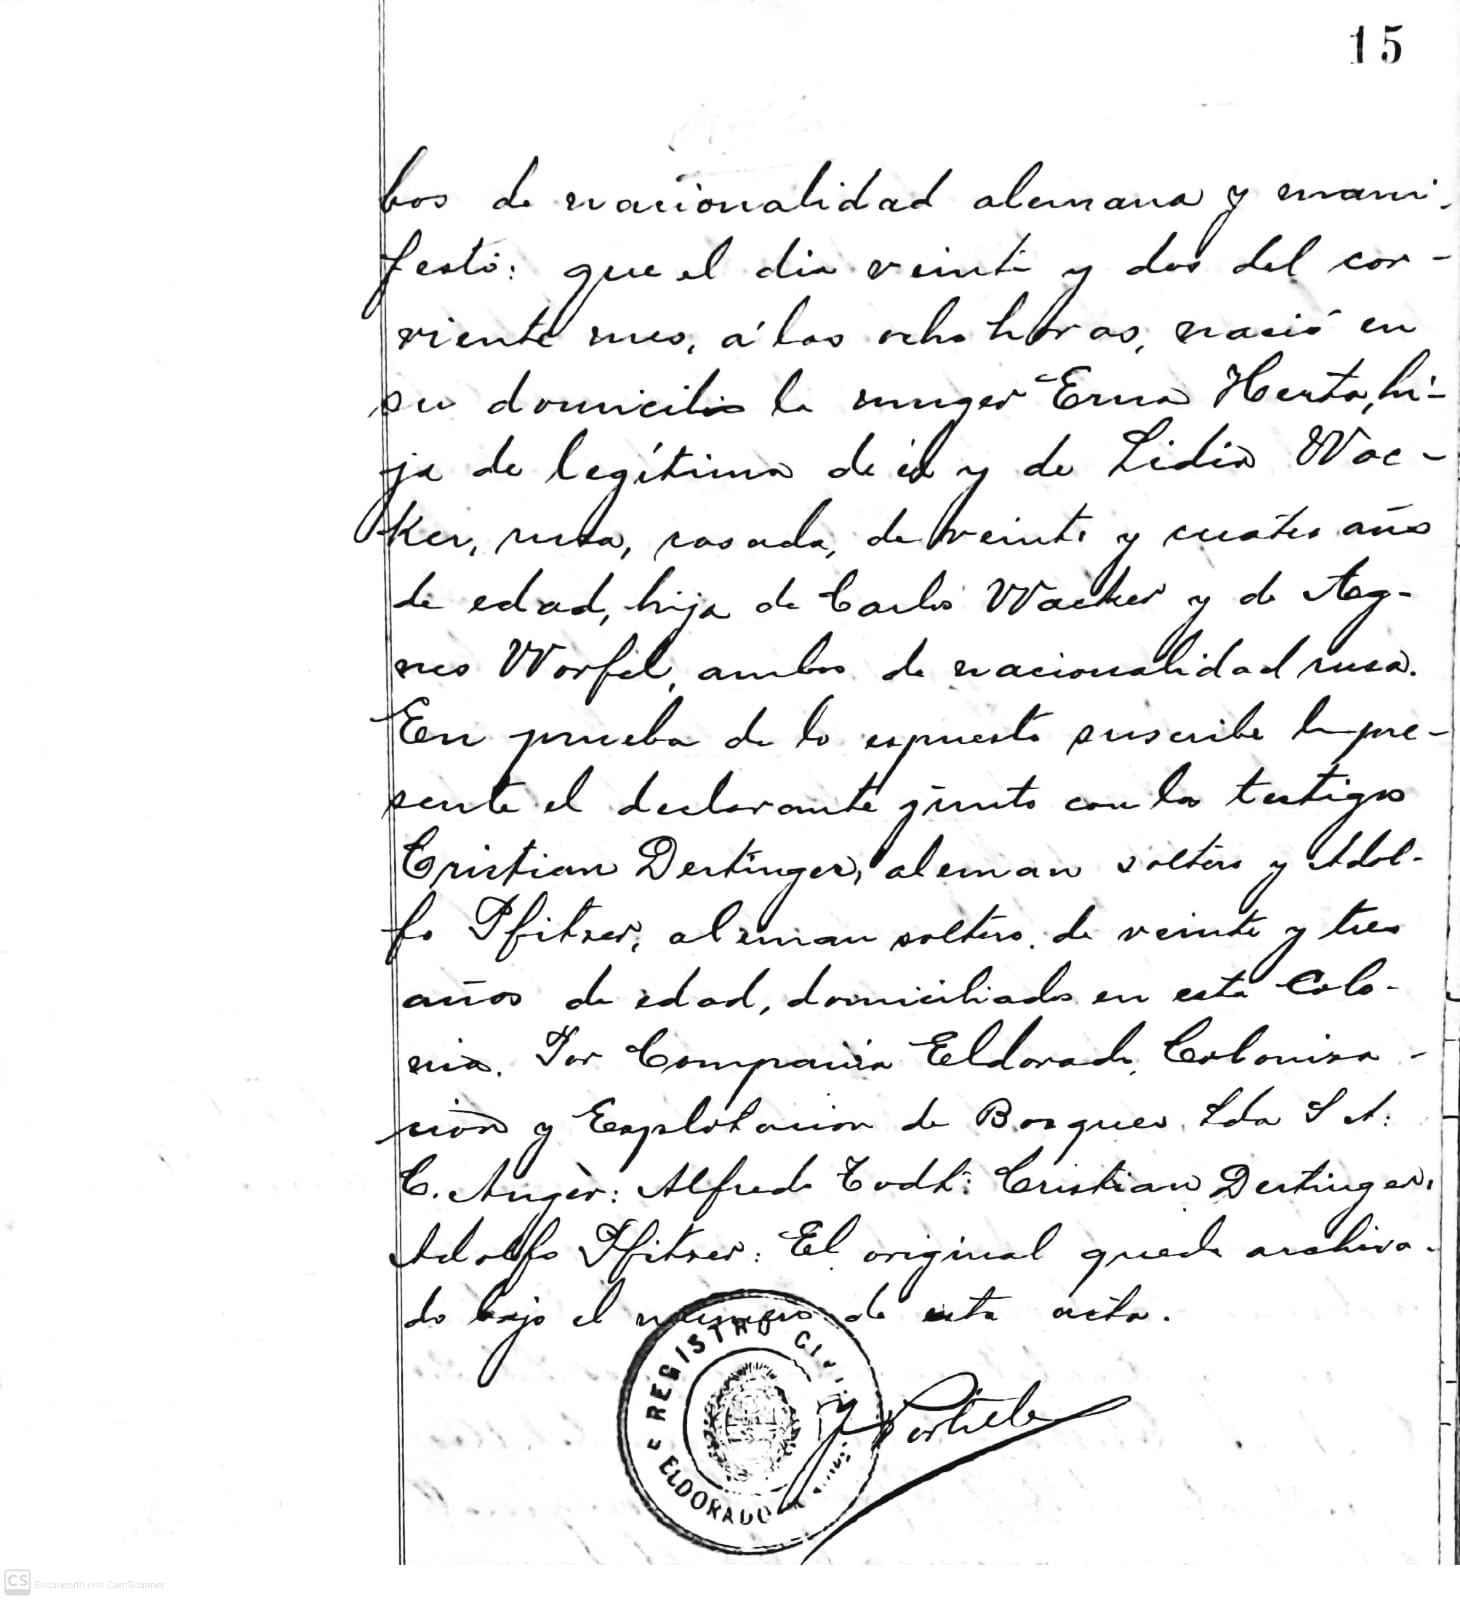 15
bos de nacionalidad alemana y mani-
festó: que el dia veinte y dos del cor-
riente mes, á las ocho horas, nació en
su domicilio la muger Erna Herta, hi-
ja de legítima de él y de Lidia Wac-
ker, rusa, casada, de veinte y cuatro años
de edad, hija de Carlos Wacker y de Ag-
nes Worfel, ambos de nacionalidad rusa.
En prueba de lo espuesto suscribe la pre-
sente el declarante junto con los testigos
Cristian Dertinger, aleman soltero y Adol-
fo Pfitzer, aleman soltero, de veinte y tres
años de edad, domiciliados en esta Colo-
nia. Por Compañia Eldorado, Coloniza-
cion y Explotacion de Bosques Lda S A:
C. Anger: Alfredo Todt: Cristian Dertinger,
Adolfo Pfitzer: El original queda archiva-
do bajo el numero de esta acta.
REGISTRO CIVIL
ELDORADO
CS Escaneado con CamScanner